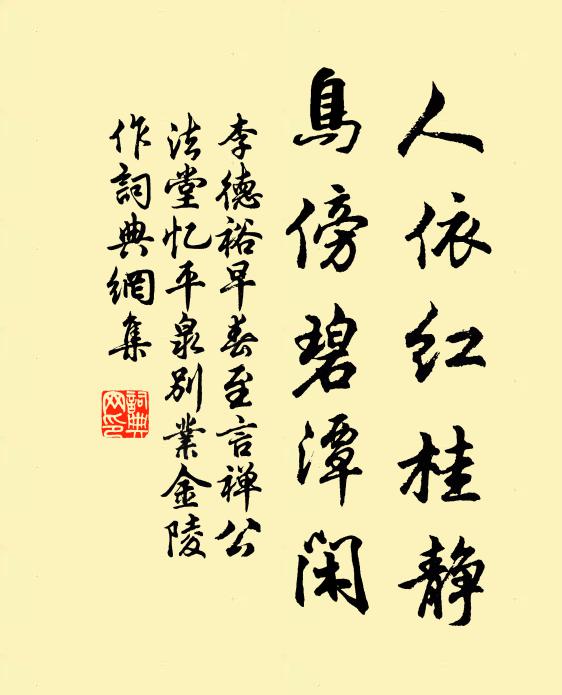 人依红桂静
鳥傍碧潭闲
李德裕早春至言禅公
法堂忆平泉别業金陵
作詞典網集
詞典
网印